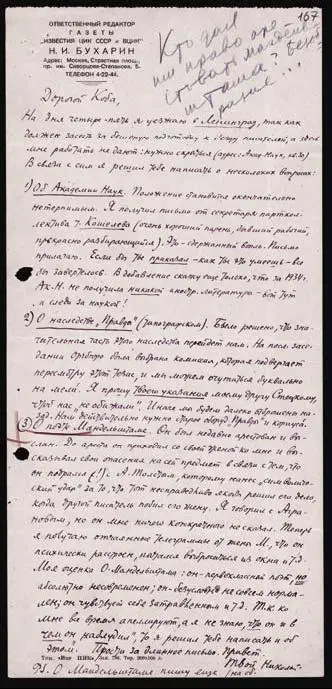 167
ОТВЕТСТВЕННЫЙ РЕДАКТОР
ГАЗЕТЫ
"ИЗВЕСТИЯ ЦИК СССР и ВЦИК"
Н. И. БУХАРИН
Адрес: Москва, Страстная площ.,
пр. им. Скворцова-Степанова, 5.
ТЕЛЕФОН 4-22-44.
Кто дал
им право аре-
стовать Мандельш-
тама? Безо-
разие...
Дорогой Коба,
На дня четыре-пять я уезжаю в Ленинград, так как
должен засесть за бешеную подготовку к съезду писателей, а здесь
мне работать не дают: нужно скрыться (адрес: Акад. Наук,
В связи с сим я решил тебе написать о нескольких вопросах:
1) Об Академии Наук. Положение становится окончательно
нетерпимым. Я получил письмо от секретаря партко-
лектива т. Кошелева (очень хороший парень, бывший рабочий,
прекрасно разбирающийся). Это - сдержанный вопль. Письмо
прилагаю. Если бы ты приказал - как ты это умеешь - все
бы завертелось. В добавление скажу еще только, что за 1934 г.
Ак. Н. не получила никакой иностр. литературы - вот тут
и следи за наукой!
2) О наследстве "Правды" (типографском). Было решено, что зна-
чительная часть этого наследства перейдет нам. На посл. засе-
дании Оргбюро была выбрана комиссия, которая подвергает
пересмотру этот тезис, и мы можем очутиться буквально
на мели. Я прошу твоего указания моему другу Стецкому,
чтоб нас "не обижали". Иначе мы будем далеко отброшены на-
зад. Нам действительно нужно старое оборуд. "Правды" и корпуса.
3) О поэте Мандельштаме. Он был недавно арестован и вы-
слан. До ареста он приходил со своей женой ко мне и вы-
сказывал свои опасения на сей предмет в связи с тем, что
он подрался (!) с А. Толстым, которому нанес "символиче-
ский удар" за то, что тот несправедливо якобы решил его дело,
когда другой писатель побил его жену. Я говорил с Агра-
новым, но он мне ничего конкретного не сказал. Теперь
я получаю отчаянные телеграммы от жены М., что он
психически расстроен, пытался выброситься из окна и т.д.
Моя оценка О. Мандельштама: он - первоклассный поэт, но
абсолютно несовременен; он - безусловно не совсем норма-
лен; он чувствует себя затравленным и т.д. Т.к. ко
мне все время апеллируют, а я не знаю, что он и в
чем он "наблудил", то я решил тебе написать и об
этом. Прости за длинное письмо. Привет.
Твой Николай
P.S. О Мандельштаме пишу еще
(на об.